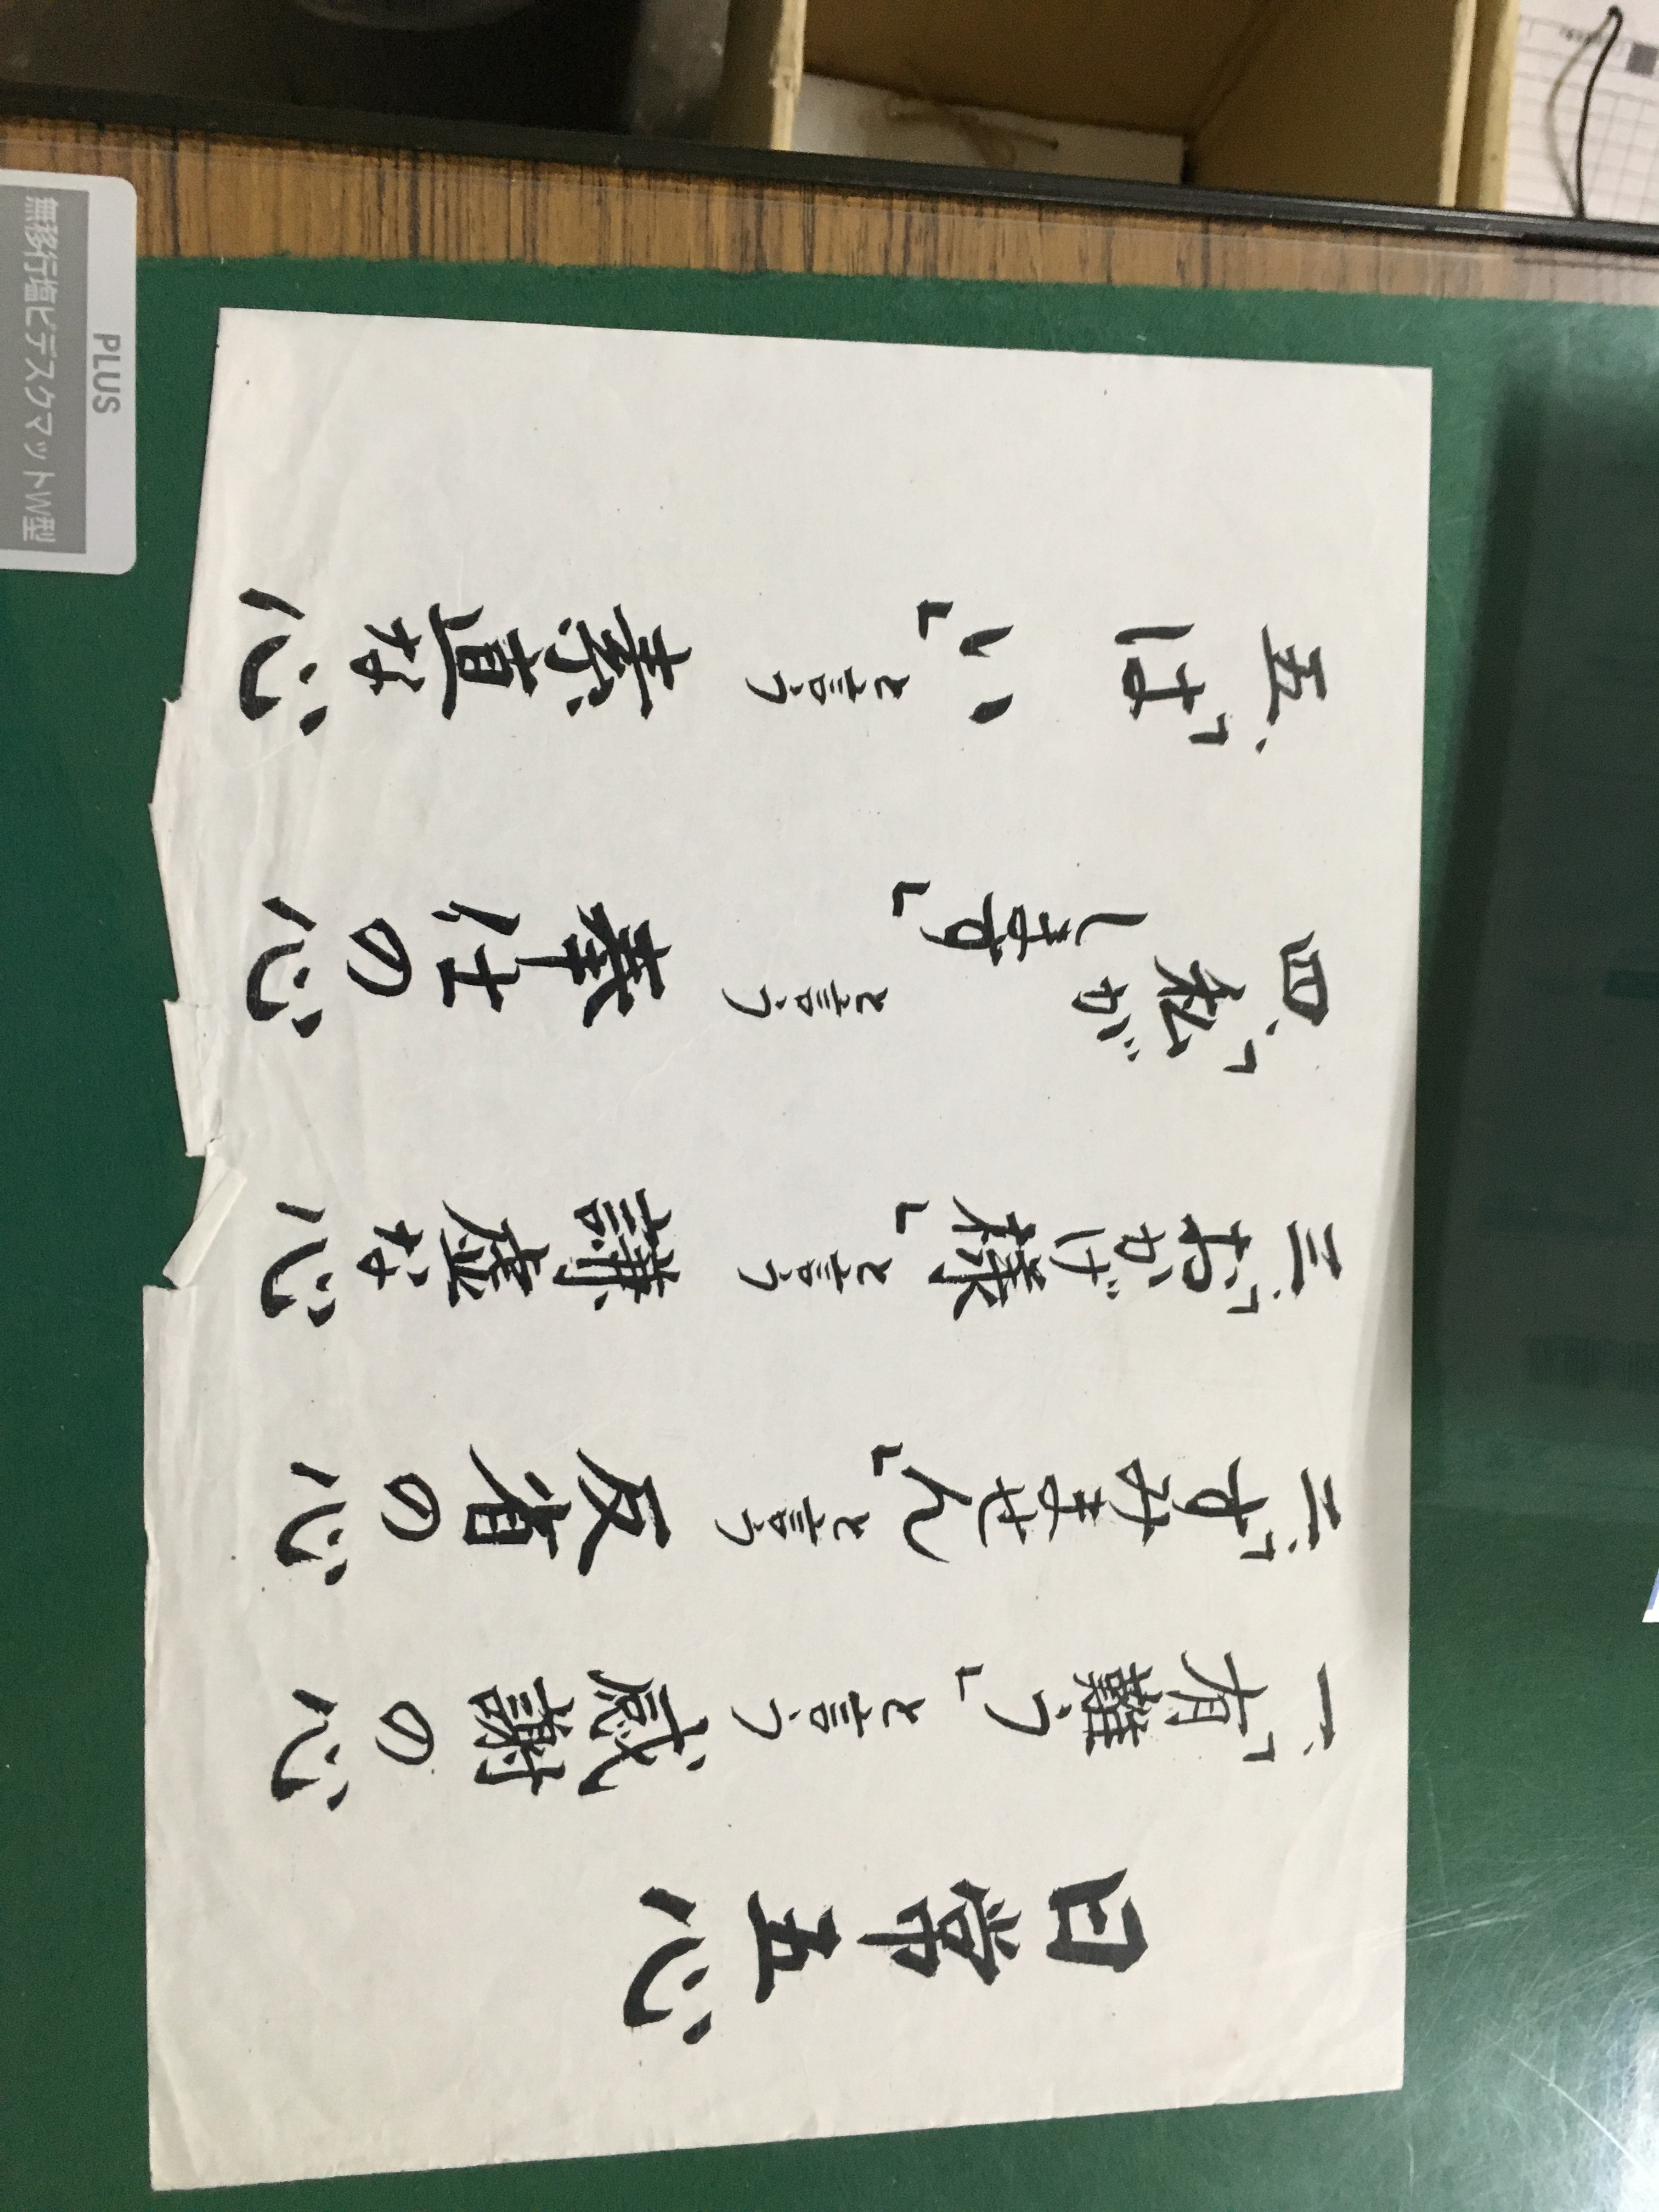 日常五心
一、「有難う」と言う感謝の心
二、「すみません」と言う反省の心
三、「おかげ様」と言う謙虚な心
四、「私がします」と言う奉仕の心
五、「はいい」と言う素直な心
PLUS
無移行塩ビデスクマットW型